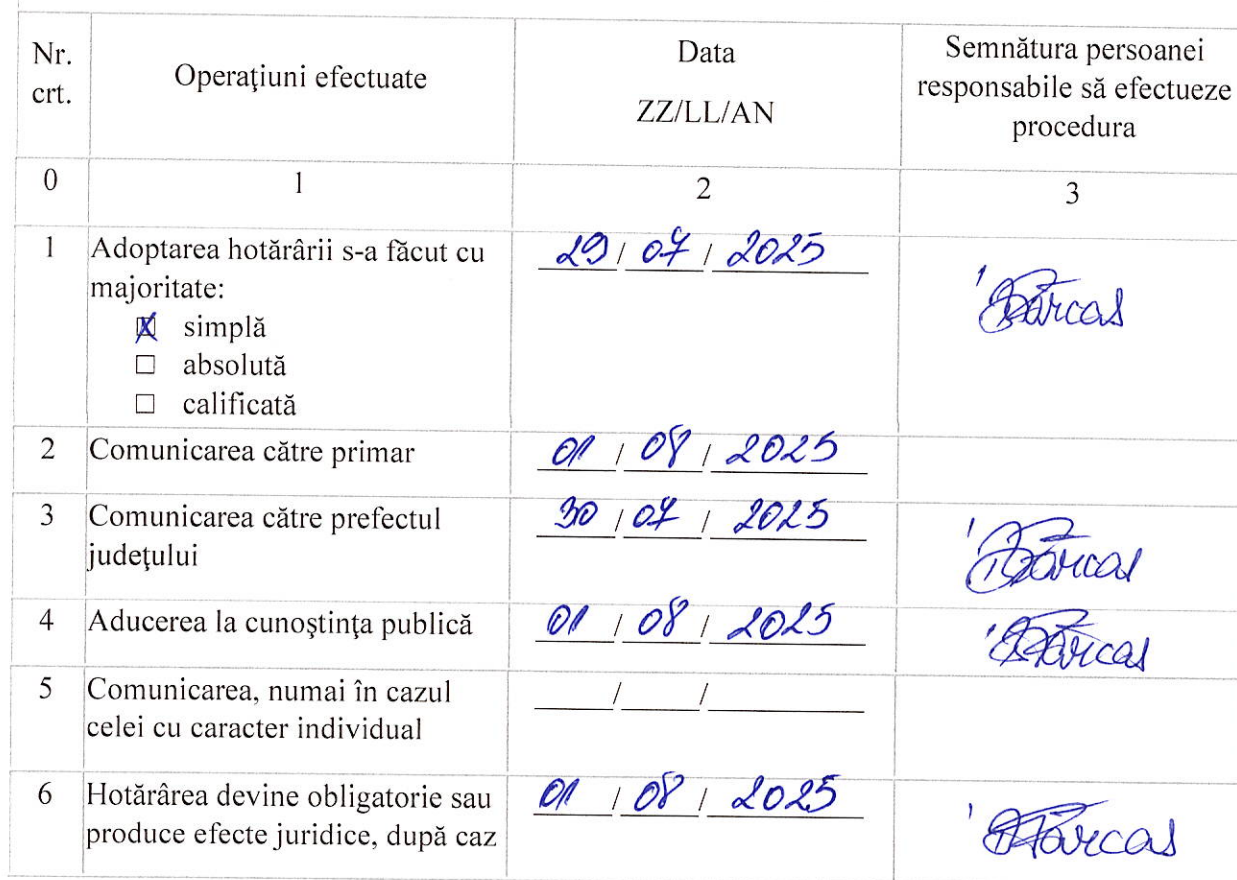 Nr. crt.
Operaţiuni efectuate
Data
ZZ/LL/AN
Semnătura persoanei
responsabile să efectueze
procedura
0 1 2 3
1 Adoptarea hotărârii s-a făcut cu 29/07/2025
majoritate:
☒ simplă
☐ absolută
☐ calificată
2 Comunicarea către primar 01/08/2025
3 Comunicarea către prefectul 30/07/2025
judeţului
4 Aducerea la cunoştinţa publică 01/08/2025
5 Comunicarea, numai în cazul ___/___/______
celei cu caracter individual
6 Hotărârea devine obligatorie sau 01/08/2025
produce efecte juridice, după caz